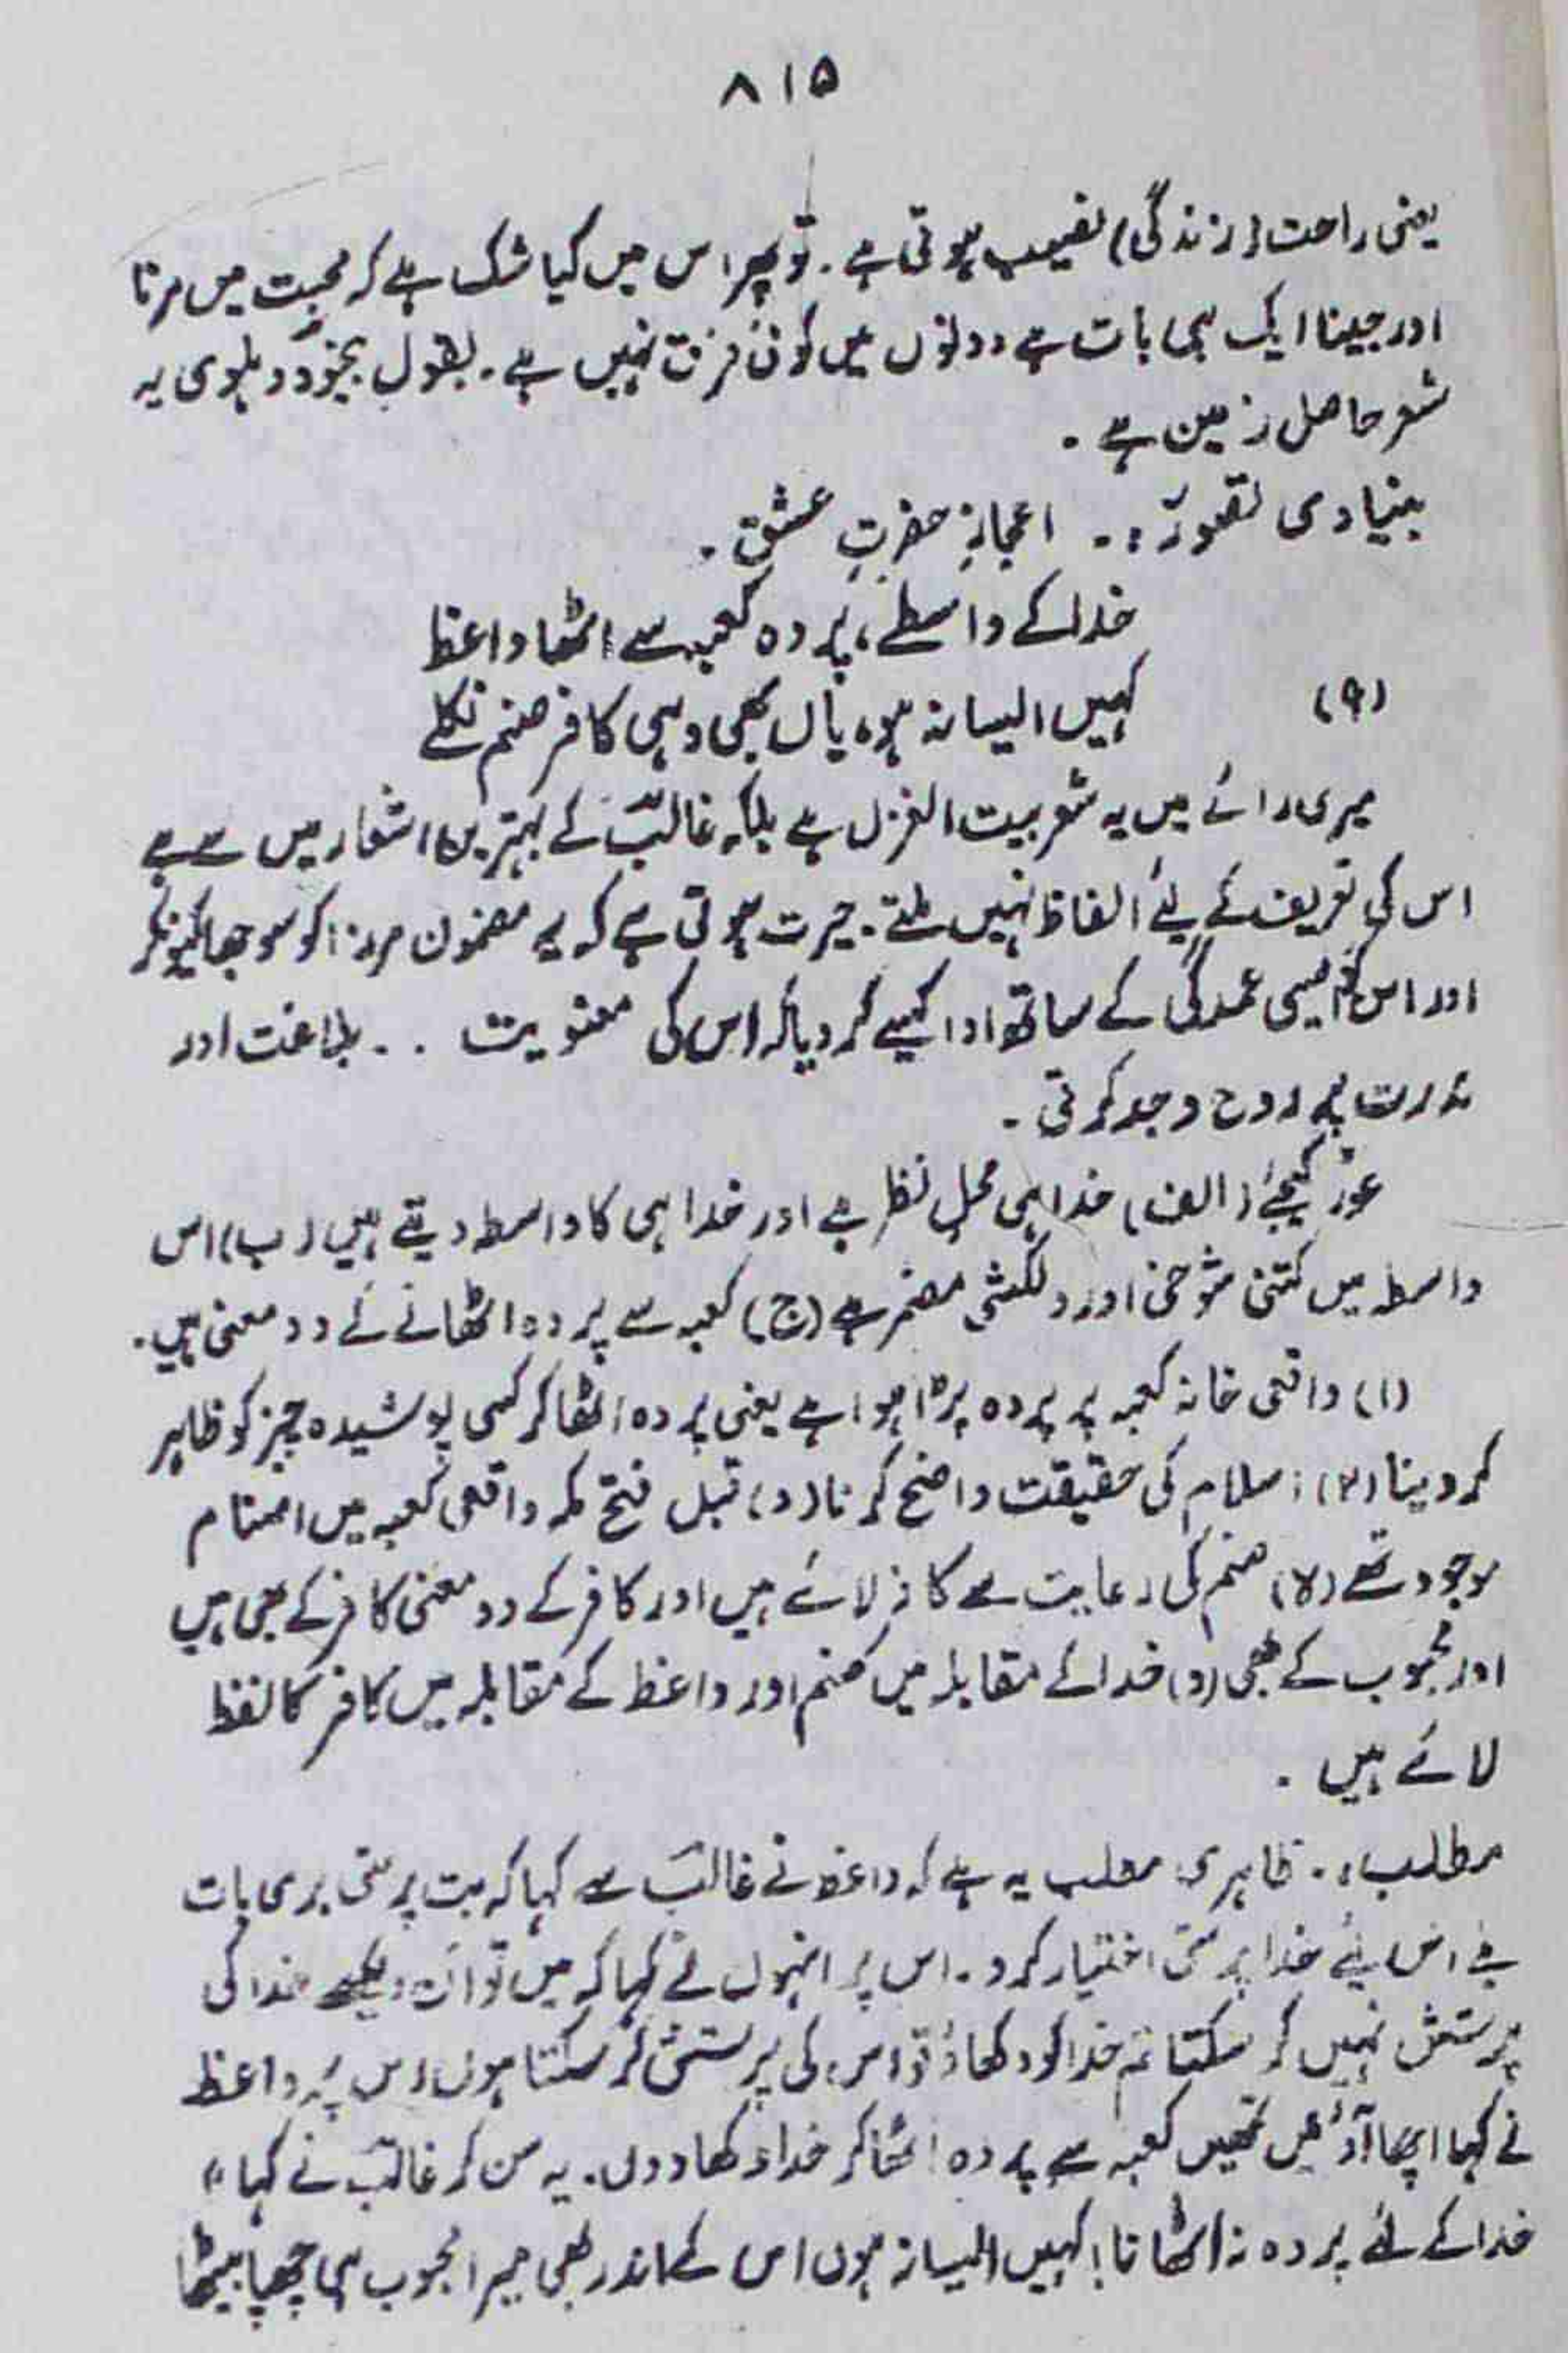 ۸۱۵
یعنی راحت (زندگی) نصیب ہوتی ہے۔ تو پھر اس میں کیا شک ہے کہ محبت میں مرنا
اور جینا ایک ہی بات ہے دونوں میں کوئی فرق نہیں ہے۔ بقول بیخودؔ دہلوی یہ
شعر حاصل زمین ہے۔
بنیادی تصور:۔ اعجازِ حضرتِ عشق۔
خدا کے واسطے، پردہ کعبہ سے اٹھا واعظ
(۹) کہیں ایسا نہ ہو، یاں بھی وہی کافر صنم نکلے
میری رائے میں یہ شعر بیت الغزل ہے بلکہ غالبؔ کے بہترین اشعار میں سے ہے
اس کی تعریف کے لیے الفاظ نہیں ملتے۔ حیرت ہوتی ہے کہ یہ مضمون مرزا کو سوجھا کیونکر
اور اس کو ایسی عمدگی کے ساتھ ادا کیسے کر دیا کہ اس کی معنویت ۔۔ بلاغت اور
ندرت پہ روح وجد کرتی۔
غور کیجئے (الف) خدا ہی محلِ نظر ہے اور خدا ہی کا واسطہ دیتے ہیں (ب) اس
واسطہ میں کتنی شوخی اور دلکشی مضمر ہے (ج) کعبہ سے پردہ اٹھانے کے دو معنی ہیں۔
(۱) واقعی خانہ کعبہ پر پردہ پڑا ہوا ہے یعنی پردہ اٹھا کر کسی پوشیدہ چیز کو ظاہر
کر دینا (۲) اسلام کی حقیقت واضح کرنا (د) قبل فتح مکہ واقعی کعبہ میں اصنام
موجود تھے (ہ) صنم کی رعایت سے کافر لائے ہیں اور کافر کے دو معنی کافر کے بھی ہیں
اور محبوب کے بھی (و) خدا کے مقابلہ میں صنم اور واعظ کے مقابلہ میں کافر کا لفظ
لائے ہیں۔
مطلب:۔ ظاہری مطلب یہ ہے کہ واعظ نے غالبؔ سے کہا کہ بت پرستی بری بات
ہے اس لئے خدا پرستی اختیار کرو۔ اس پر انہوں نے کہا کہ میں تو اَن دیکھے خدا کی
پرستش نہیں کر سکتا تم خدا کو دکھاؤ تو اس کی پرستش کر سکتا ہوں اس پہ واعظ
نے کہا اچھا آؤ میں تمھیں کعبہ سے پردہ اٹھا کر خدا دکھا دوں۔ یہ سن کر غالبؔ نے کہا "
خدا کے لئے پردہ نہ اٹھانا! کہیں ایسا نہ ہوں اس کے اندر بھی میرا محبوب ہی چھپا بیٹھا